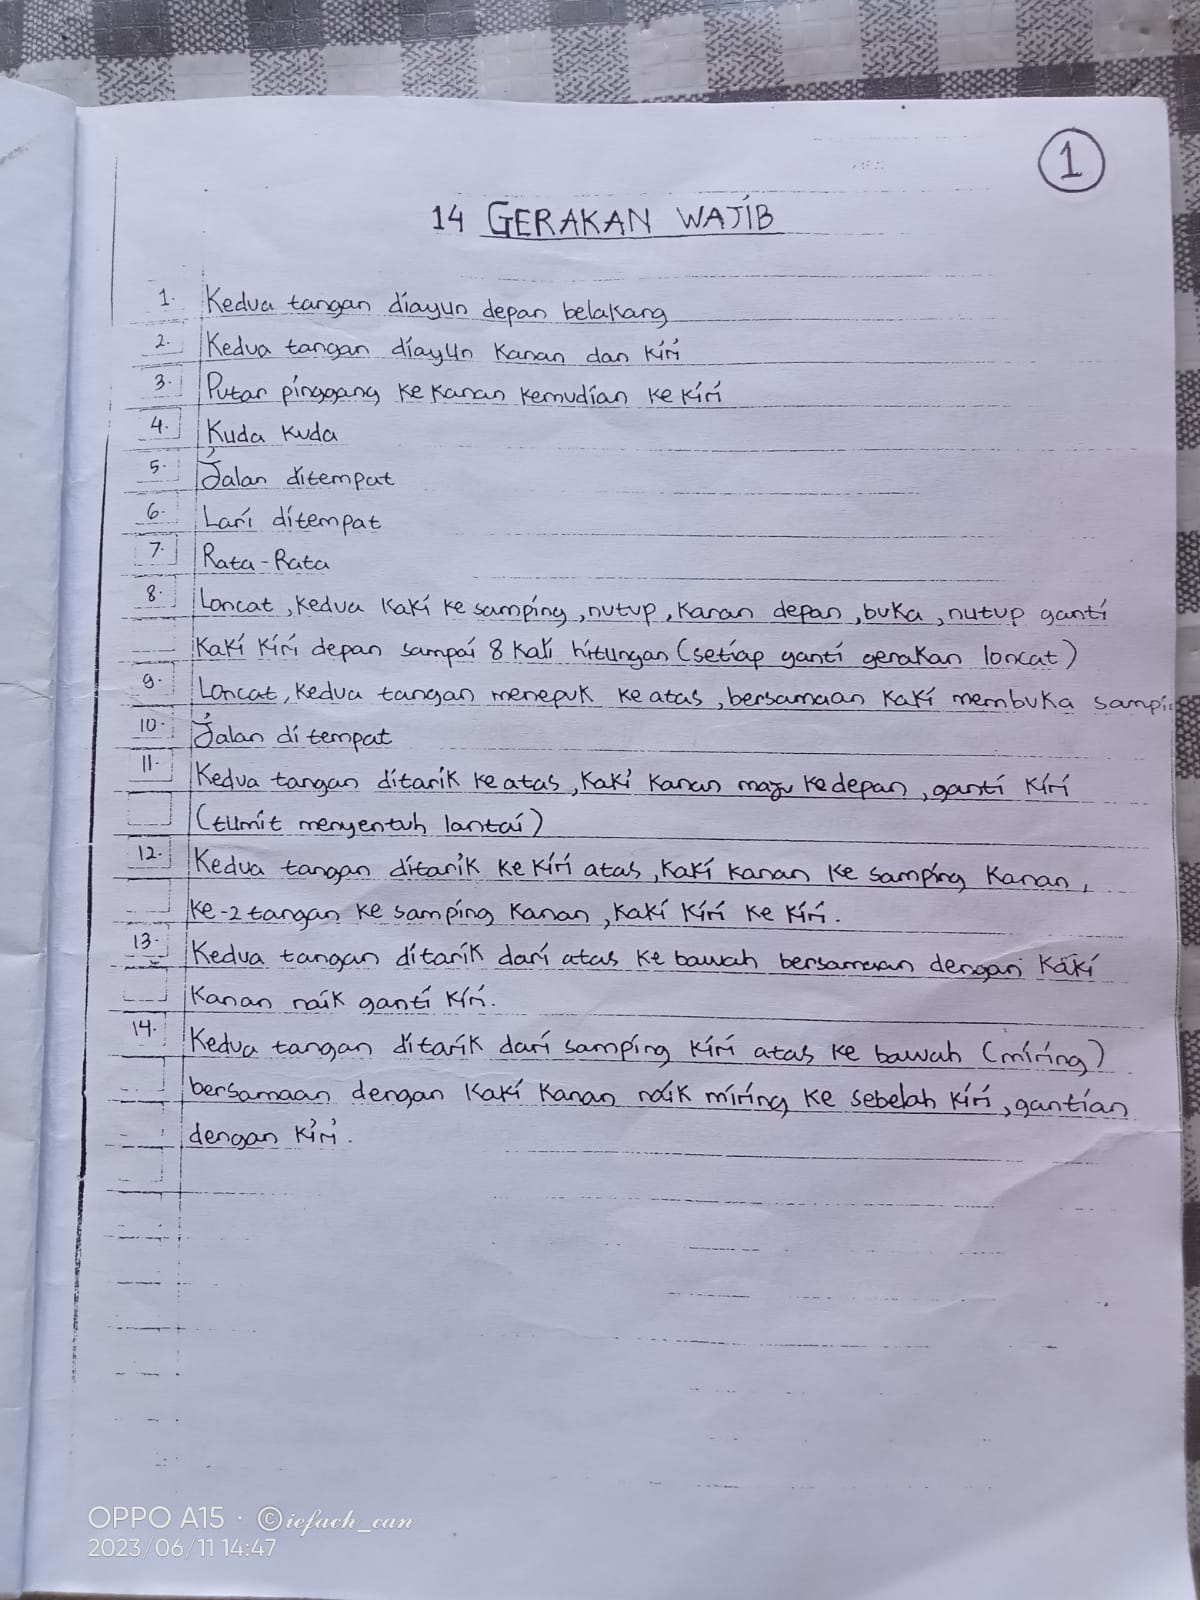 1
14 GERAKAN WAJIB
1. Kedua tangan diayun depan belakang
2. Kedua tangan diayun Kanan dan Kiri
3. Putar pinggang ke kanan kemudian ke kiri
4. Kuda kuda
5. Jalan ditempat
6. Lari ditempat
7. Rata-Rata
8. Loncat, kedua kaki ke samping, nutup, kanan depan, buka, nutup ganti
kaki kiri depan sampai 8 kali hitungan (setiap ganti gerakan loncat)
9. Loncat, kedua tangan menepuk ke atas, bersamaan kaki membuka
10. Jalan di tempat
11. Kedua tangan ditarik ke atas, kaki kanan maju kedepan, ganti kiri
(tumit menyentuh lantai)
12. Kedua tangan ditarik ke kiri atas, kaki kanan ke samping kanan,
ke-2 tangan ke samping kanan, kaki kiri ke kiri.
13. Kedua tangan ditarik dari atas ke bawah bersamaan dengan kaki
kanan naik ganti kiri.
14. Kedua tangan ditarik dari samping kiri atas ke bawah (miring)
bersamaan dengan kaki kanan naik miring ke sebelah kiri, gantian
dengan kiri.
OPPO A15 · ©iefach_can
2023/06/11 14:47